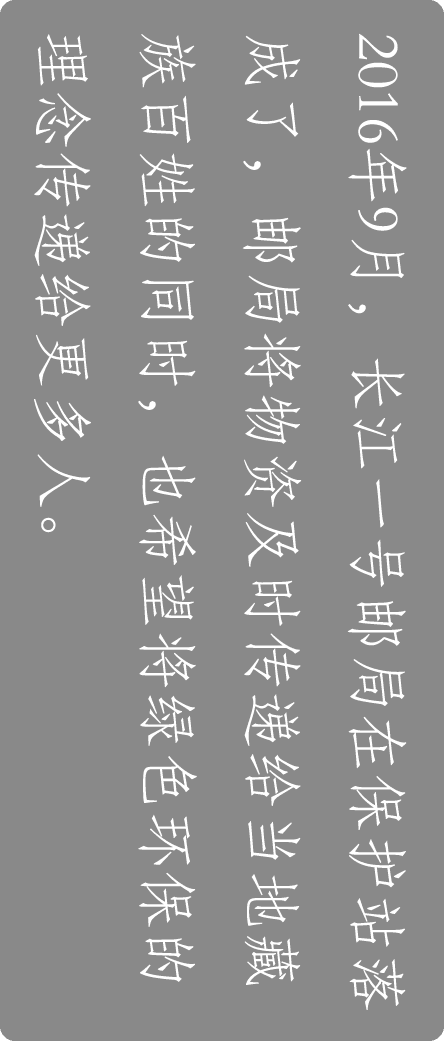 2016年9月，长江一号邮局在保护站落
成了，邮局将物资及时传递给当地藏
族百姓的同时，也希望将绿色环保的
理念传递给更多人。